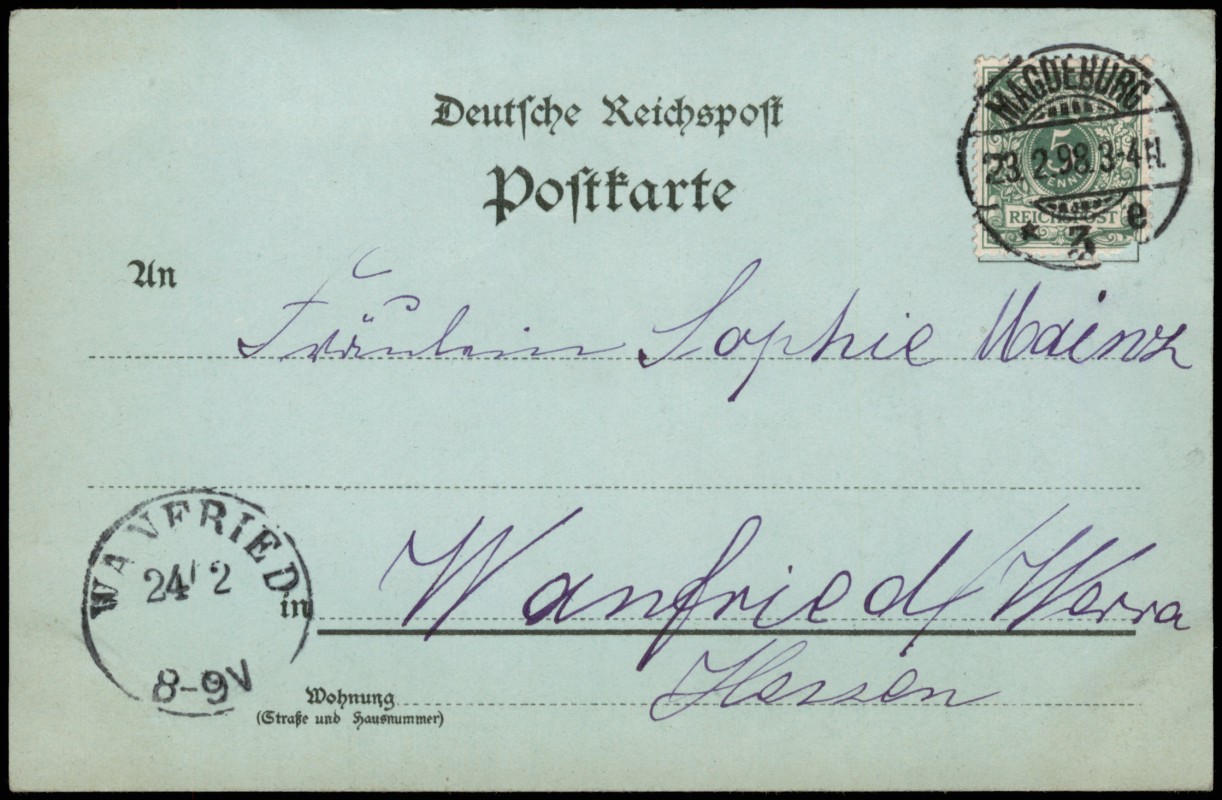 Deutsche Reichspost
Postkarte
MAGDEBURG
23.2.98.3-4N.
* 3 e
5
PFENNIG
REICHSPOST
An
Fräulein Sophie Mainz
WANFRIED
24/2
8-9V
in
Wanfried/Werra
Hessen
Wohnung
(Straße und Hausnummer)